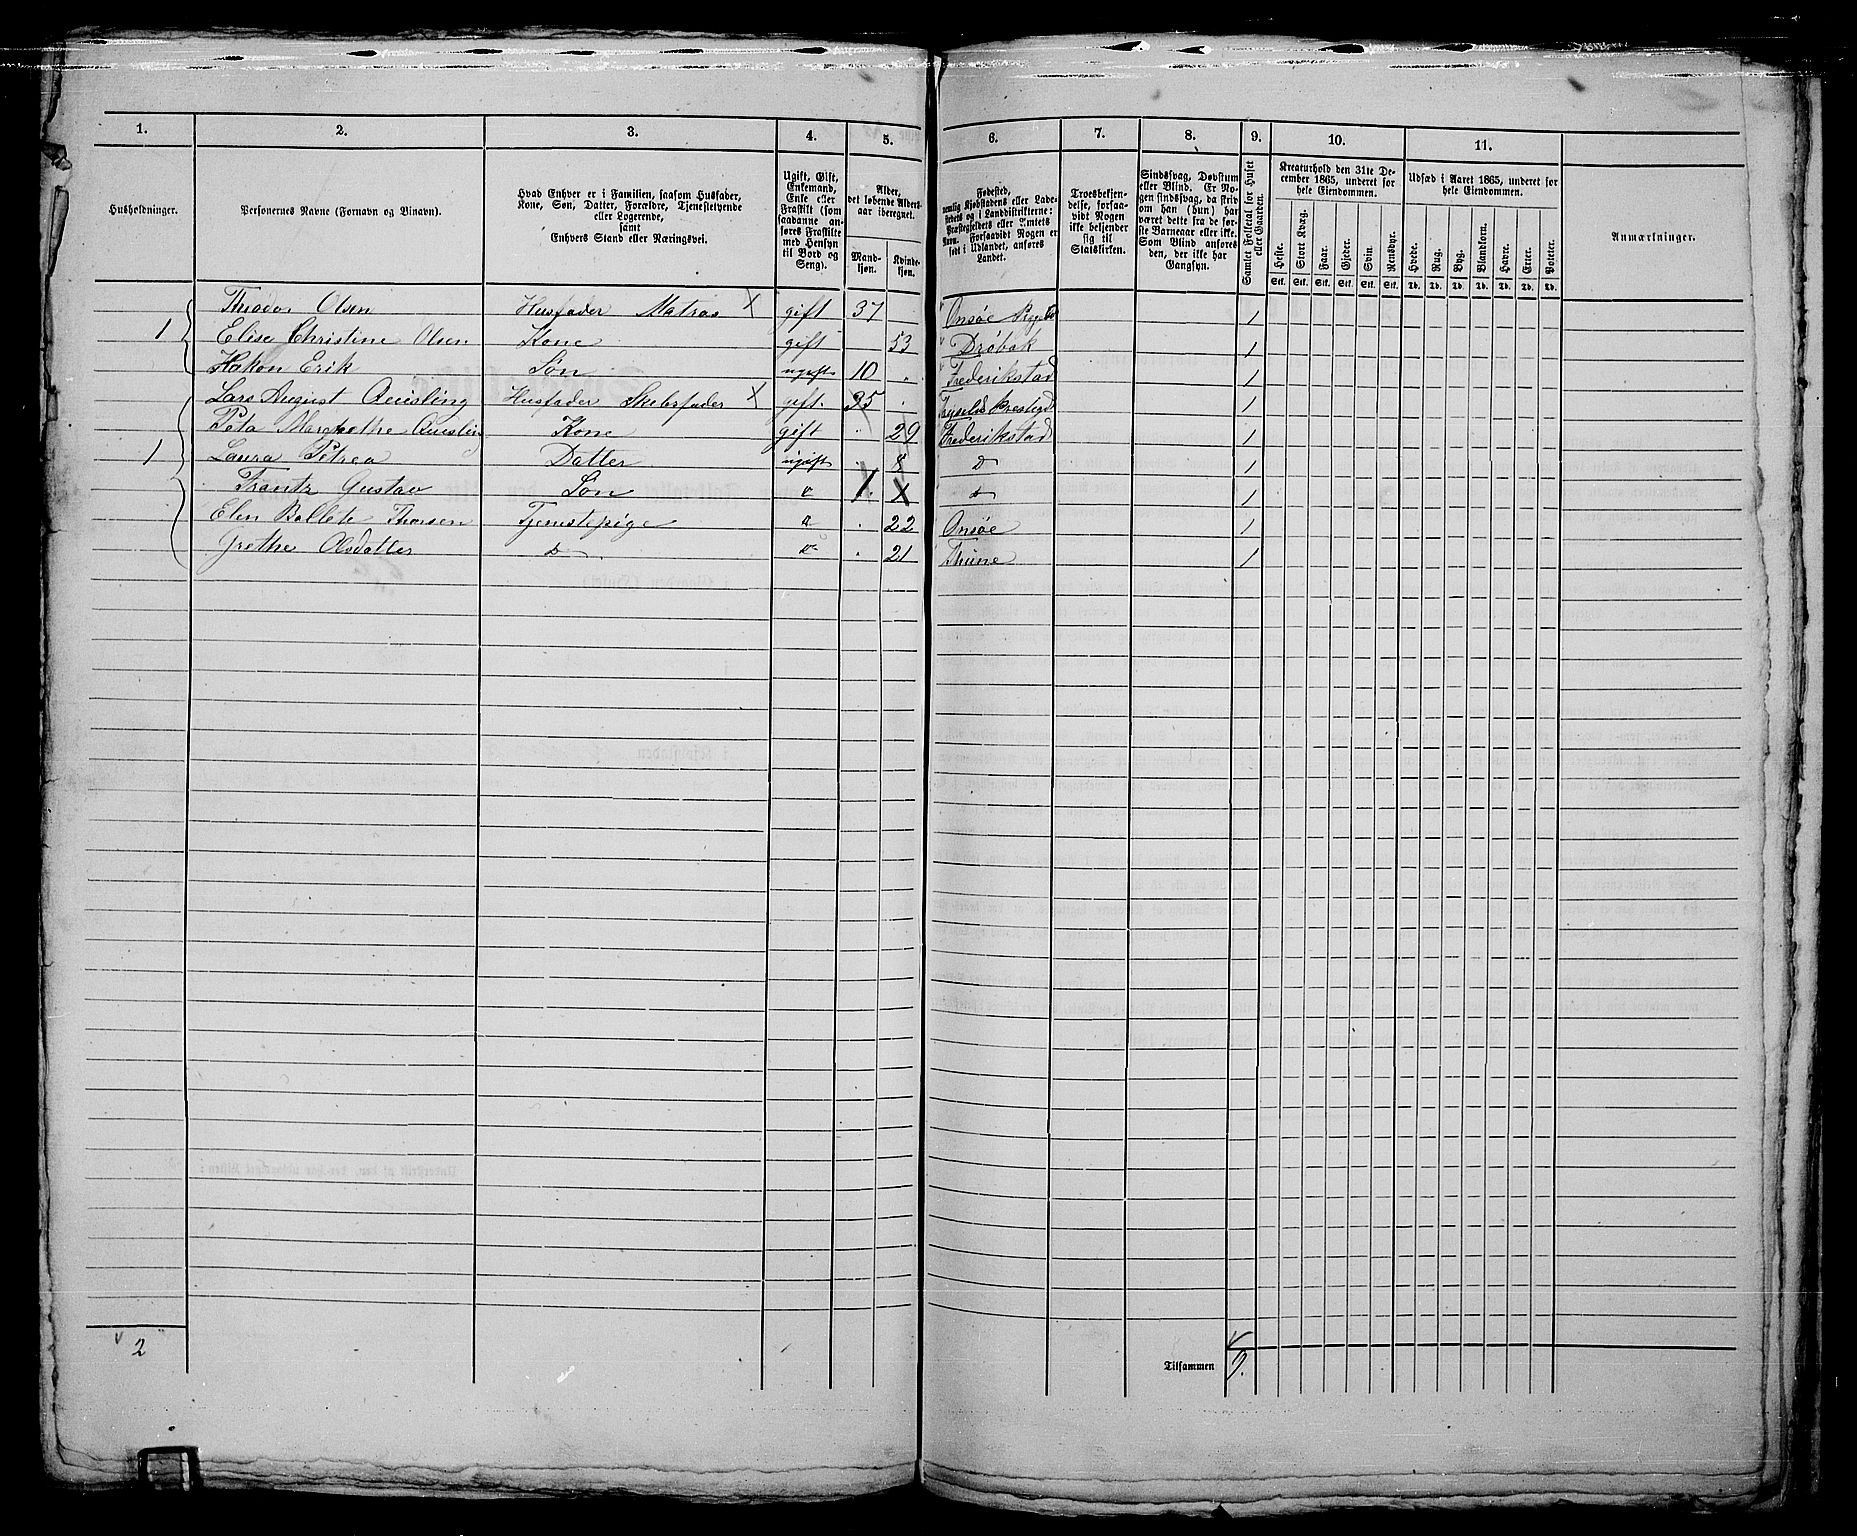 1. 2. 3. 4. 5. 6. 7. 8. 9. 10. 11.
Husholdninger.
Personernes Navne (Fornavn og Binavn).
Hvad Enhver er i Familien, saasom Husfader,
Kone, Søn, Datter, Forældre, Tjenestetyende
eller Logerende,
samt
Enhvers Stand eller Næringsvei.
Ugift, Gift,
Enkemand,
Enke eller
Fraskilt (som
saadanne an-
føres Fraskilte
med Hensyn
til Bord og
Seng).
Alder,
det løbende Alders-
aar iberegnet.
Mand-
kjøn.
Kvinde-
kjøn.
Fødested,
nemlig Kjøbstadens eller Lade-
stedets og i Landdistrikterne:
Præstegjeldets eller Amtets
Navn. Forsaavidt Nogen er
født i Udlandet, anføres
Landet.
Troesbekjen-
delse, forsaa-
vidt Nogen
ikke bekjender
sig til
Statskirken.
Sindssvag, Døvstum
eller Blind. Er No-
gen sindssvag, da skriv
om han (hun) har
været dette fra de før-
ste Barneaar eller ikke.
Som Blind anføres
den, der ikke har
Gangsyn.
Samlet Folketal for Huset
eller Gaarden.
Kreaturhold den 31te De-
cember 1865, underet for
hele Eiendommen.
Heste. Stort Kvæg. Faar. Gjeder. Svin. Rensdyr.
Stk. Stk. Stk. Stk. Stk. Stk.
Udsæd i Aaret 1865, underet for
hele Eiendommen.
Hvede. Rug. Byg. Blandkorn. Havre. Erter. Poteter.
Td. Td. Td. Td. Td. Td. Td.
Anmærkninger.
Theodor Olsen Husfader Matros X gift 37 Onsøe 1
1 Elise Christine Olsen Kone gift 53 Drøbak 1
Hakon Erik Søn ugift 10 Frederikstad 1
Lars August Quisling Husfader X gift 35 1
Margrethe Kone gift 29 Frederikstad 1
1 Laura Petrea Datter ugift 8 D 1
Frantz Gustav Søn 1 X D 1
Elen Thorsen Tjenestepige 22 Onsøe 1
Grethe Olsdatter D 21 Thune 1
2 Tilsammen 9.